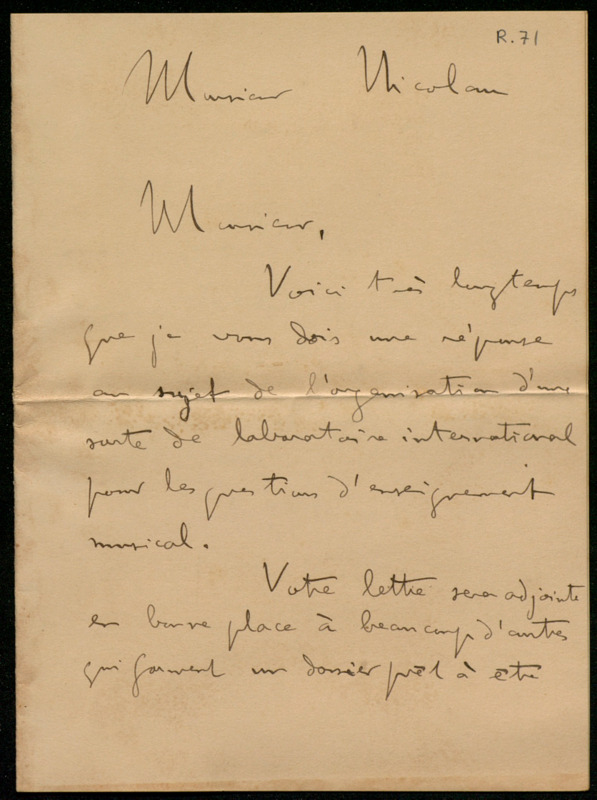 R.71
Monsieur Nicolau
Monsieur,
Voici très longtemps
que je vous dois une réponse
au sujet de l'organisation d'une
sorte de laboratoire international
pour les questions d'enseignement
musical.
Votre lettre sera adjointe
en bonne place à beaucoup d'autres
qui forment un dossier prêt à être